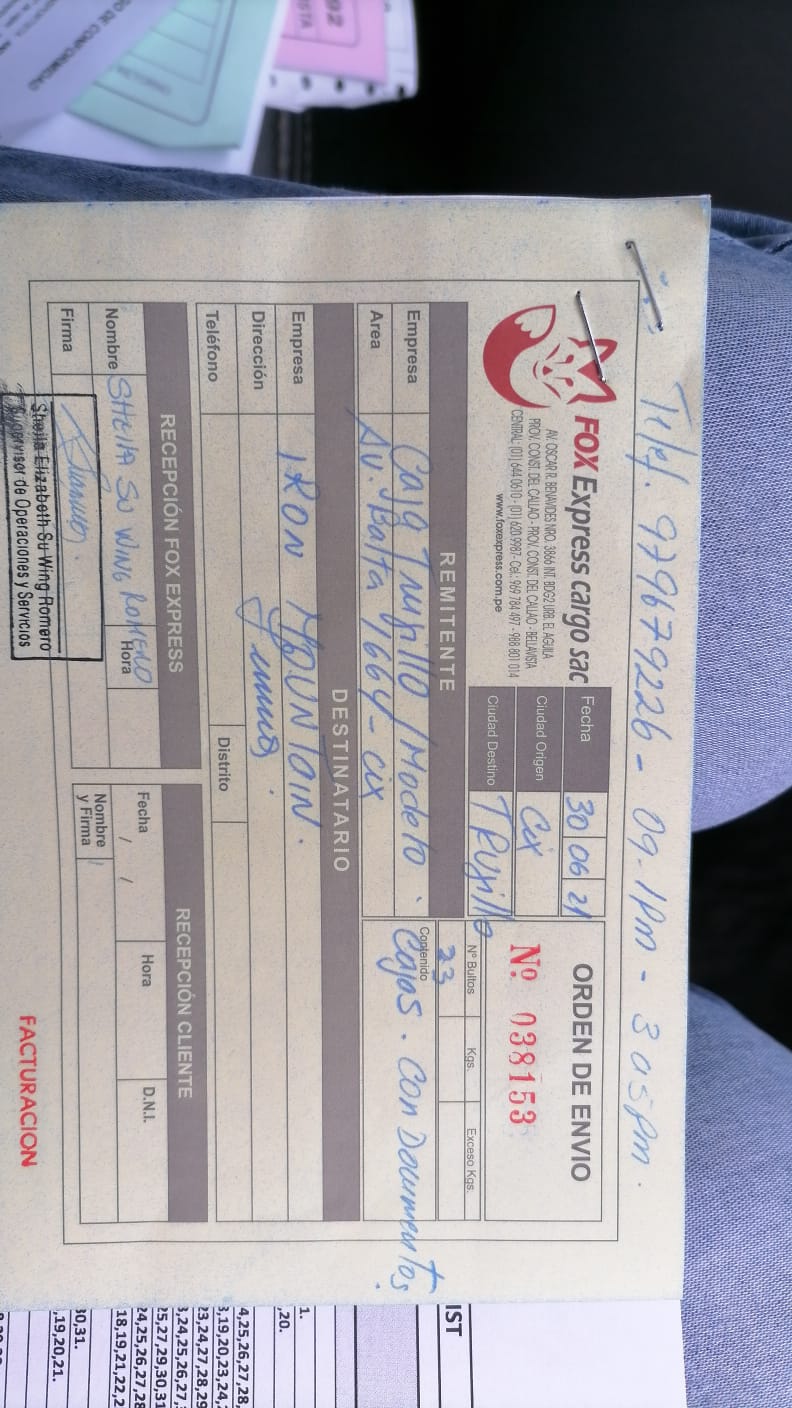 Telef. 979679226 - 09.1Pm - 3 05 Pm.
FOX Express cargo sac
AV. OSCAR R. BENAVIDES NRO. 3866 INT. BDG2 URB. EL AGUILA
PROV. CONST. DEL CALLAO - PROV. CONST. DEL CALLAO - BELLAVISTA
CENTRAL: (01) 644 0610 - (01) 620 9987 - Cel.: 969 784 497 - 988 801 014
www.foxexpress.com.pe
Fecha 30 06 21
Ciudad Origen Cix
Ciudad Destino TRujillo
ORDEN DE ENVIO
Nº 038153
Nº Bultos Kgs. Exceso Kgs.
23
Contenido
Cajas. Con Documentos.
REMITENTE
Empresa Caja Trujillo / Modelo.
Area Av. Balta 1664 - cix
DESTINATARIO
Empresa IRON MOUNTAIN.
Dirección
Teléfono Distrito
RECEPCIÓN FOX EXPRESS
Nombre SHEILA SU WING ROMERO Hora
Firma
Sheila Elizabeth Su Wing Romero
Supervisor de Operaciones y Servicios
RECEPCIÓN CLIENTE
Fecha / / Hora D.N.I.
Nombre
y Firma
FACTURACION
IST
1.
,20.
4,25,26,27,28,
3,19,20,23,24,
23,24,27,28,29
3,24,25,26,27,
25,27,29,30,31
24,25,26,27,28
18,19,21,22,2
30,31.
,19,20,21.
92
STA
DO DE CONFORMIDAD